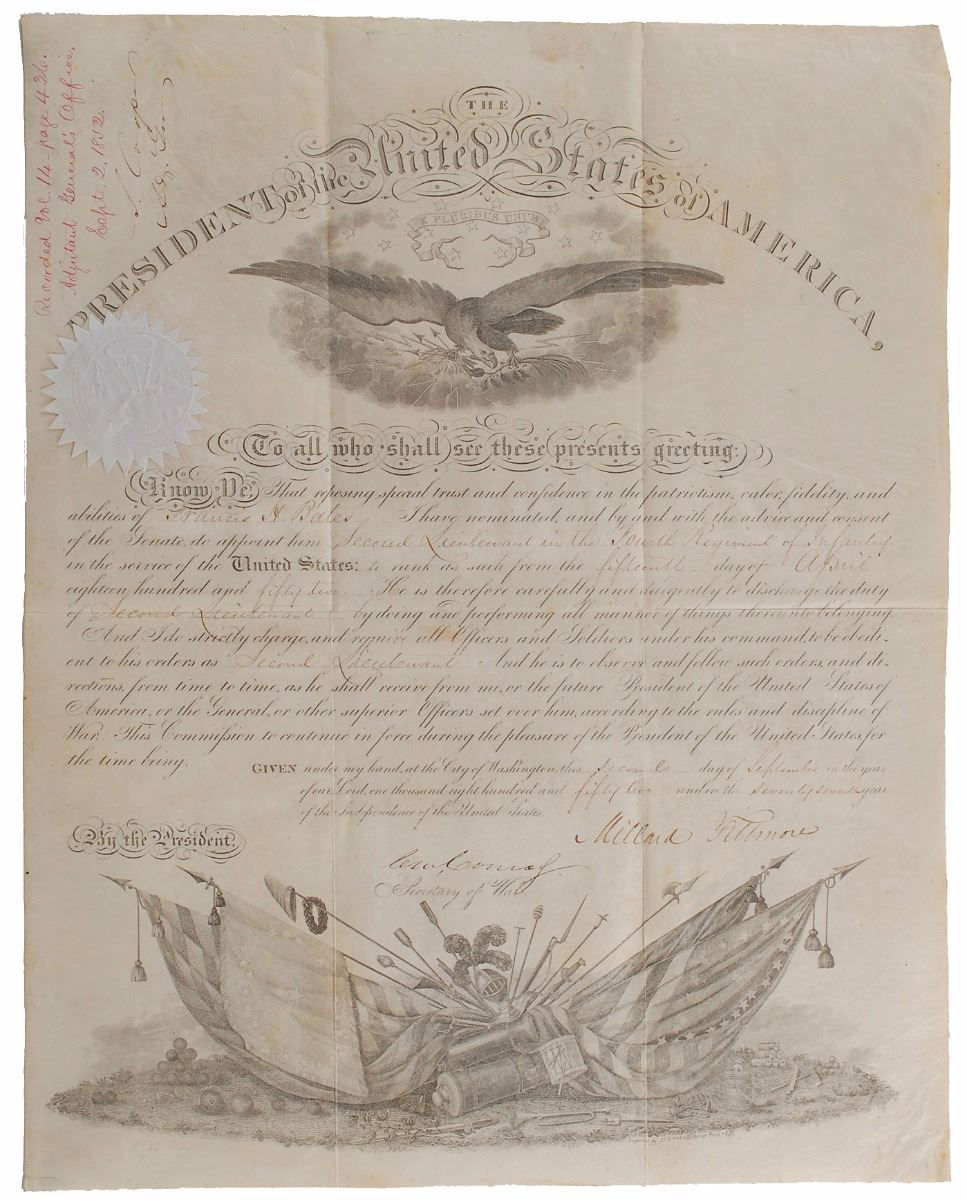 Recorded Vol. 14 - page 436.
Adjutant General's Office,
Sept. 2, 1852.
S. Cooper
THE
PRESIDENT of the United States of AMERICA,
E PLURIBUS UNUM
To all who shall see these presents greeting:
Know Ye, That reposing special trust and confidence in the patriotism, valor, fidelity, and
abilities of Francis H. Bates, I have nominated, and by and with the advice and consent
of the Senate, do appoint him Second Lieutenant in the Fourth Regiment of Infantry
in the service of the United States: to rank as such from the fifteenth day of April
eighteen hundred and fifty two. He is therefore carefully and diligently to discharge the duty
of Second Lieutenant by doing and performing all manner of things thereunto belonging.
And I do strictly charge, and require all Officers and Soldiers under his command, to be obedi-
ent to his orders as Second Lieutenant. And he is to observe and follow such orders, and di-
rections, from time to time, as he shall receive from me, or the future President of the United States of
America, or the General, or other superior Officers set over him, according to the rules and discipline of
War. This Commission to continue in force during the pleasure of the President of the United States, for
the time being.
GIVEN under my hand, at the City of Washington, this second day of September in the year
of our Lord, one thousand eight hundred and fifty two and in the seventy seventh year
of the Independence of the United States.
Millard Fillmore
By the President.
Secretary of War.